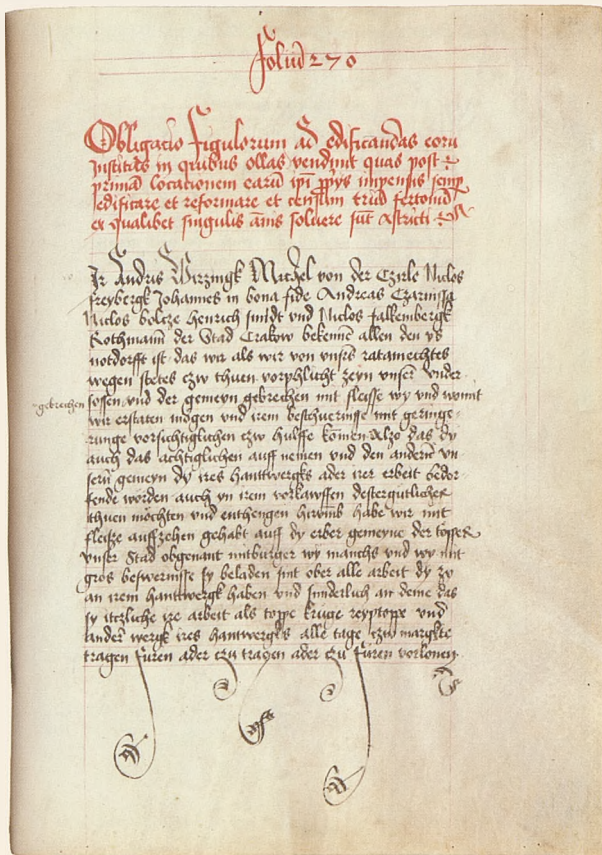 Foliu 270
Obligacio Figulorum ad edificandas eoru
Institas in quibus ollas vendunt quas post
primam locacionem earu ipi ppys impensis semp
edificare et reformare et censum triu fertonu
ex qualibet singulis annis soluere sut Astricti
Ir Andris Wirzingk Michel von der Czirle Niclos
freybergk Johannes in bona fide Andreas Czarnissa
Niclos bolcze Henrich smidt vnd Niclos falkembergk
Rothmann der Stad Crakow bekenne allen den ys
notdorfft ist das wir als wir von vnsirs ratamechtes
wegen stetes czw thuen vorphlicht zeyn vnser vnder
gebrechen
sossen vnd der gemeyn gebrechen mit fleisse wy vnd womit
wir erstaten mogen vnd irem beschwernisse mit geringe
runge vorsichtiglichen czw hulffe komen Alzo das dy
auch das achtiglichen auff nemen vnd den andern vn
sern gemeyn dy ires hanttwergks ader irer erbeit bedor
fende worden auch yn irem vorkawffen destergutlicher
thuen mochten vnd enthengen hirumb habe wir mit
fleisse auffzehen gehabt auff dy erber gemeyne der topper
vnser Stad obgenant mitburger wy manchs vnd wy mit
gros beswernisse sy beladen sint ober alle arbeit dy zy
an irem hanttwergk haben vnd sunderlich an deme das
sy itczliche ire arbeit als toppe kruge reyptoppe vnd
ander wergk ires hantwergks alle tage czw margkte
tragen furen ader czu tragen ader czu furen vorlonen